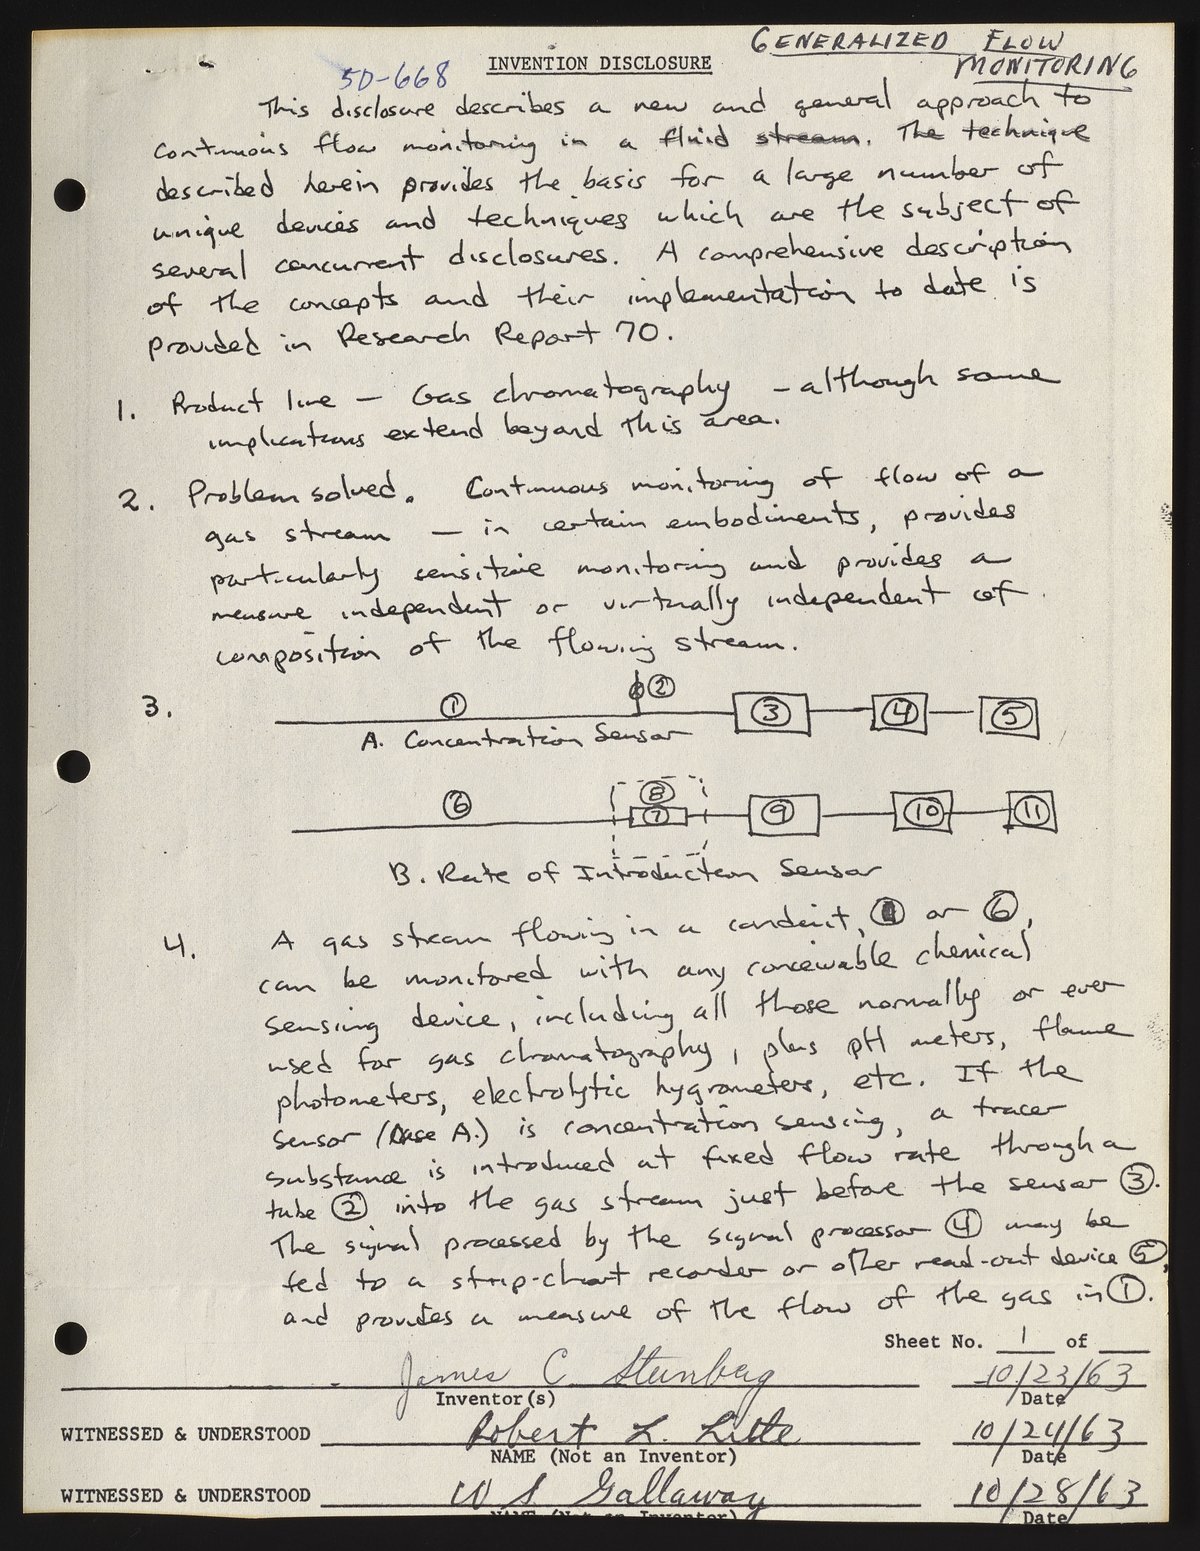 GENERALIZED FLOW
MONITORING
INVENTION DISCLOSURE
50-668
This disclosure describes a new and general approach to
continuous flow monitoring in a fluid stream. The technique
described herein provides the basis for a large number of
unique devices and techniques which are the subject of
several concurrent disclosures. A comprehensive description
of the concepts and their implementation to date is
provided in Research Report 70.
1. Product line — Gas chromatography — although some
implications extend beyond this area.
2. Problem solved. Continuous monitoring of flow of a
gas stream — in certain embodiments, provides
particularly sensitive monitoring and provides a
measure independent or virtually independent of
composition of the flowing stream.
3. 1 2 3 4 5
A. Concentration Sensor
6 8 7 9 10 11
B. Rate of Introduction Sensor
4. A gas stream flowing in a conduit, 1 or 6,
can be monitored with any conceivable chemical
sensing device, including all those normally or ever
used for gas chromatography, plus pH meters, flame
photometers, electrolytic hygrometers, etc. If the
sensor (Case A.) is concentration sensing, a tracer
substance is introduced at fixed flow rate through a
tube 2 into the gas stream just before the sensor 3.
The signal processed by the signal processor 4 may be
fed to a strip-chart recorder or other read-out device 5,
and provides a measure of the flow of the gas in 1.
Sheet No. 1 of
James C. Sternberg 10/23/63
Inventor(s) Date
WITNESSED & UNDERSTOOD Robert L. Little 10/24/63
NAME (Not an Inventor) Date
WITNESSED & UNDERSTOOD W S Gallaway 10/28/63
NAME (Not an Inventor) Date